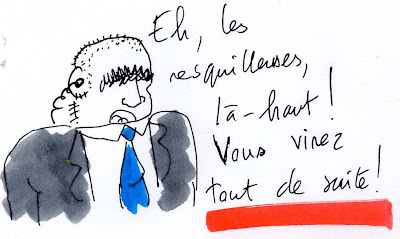 Eh, les
resquilleuses,
là-haut !
Vous virez
tout de suite !